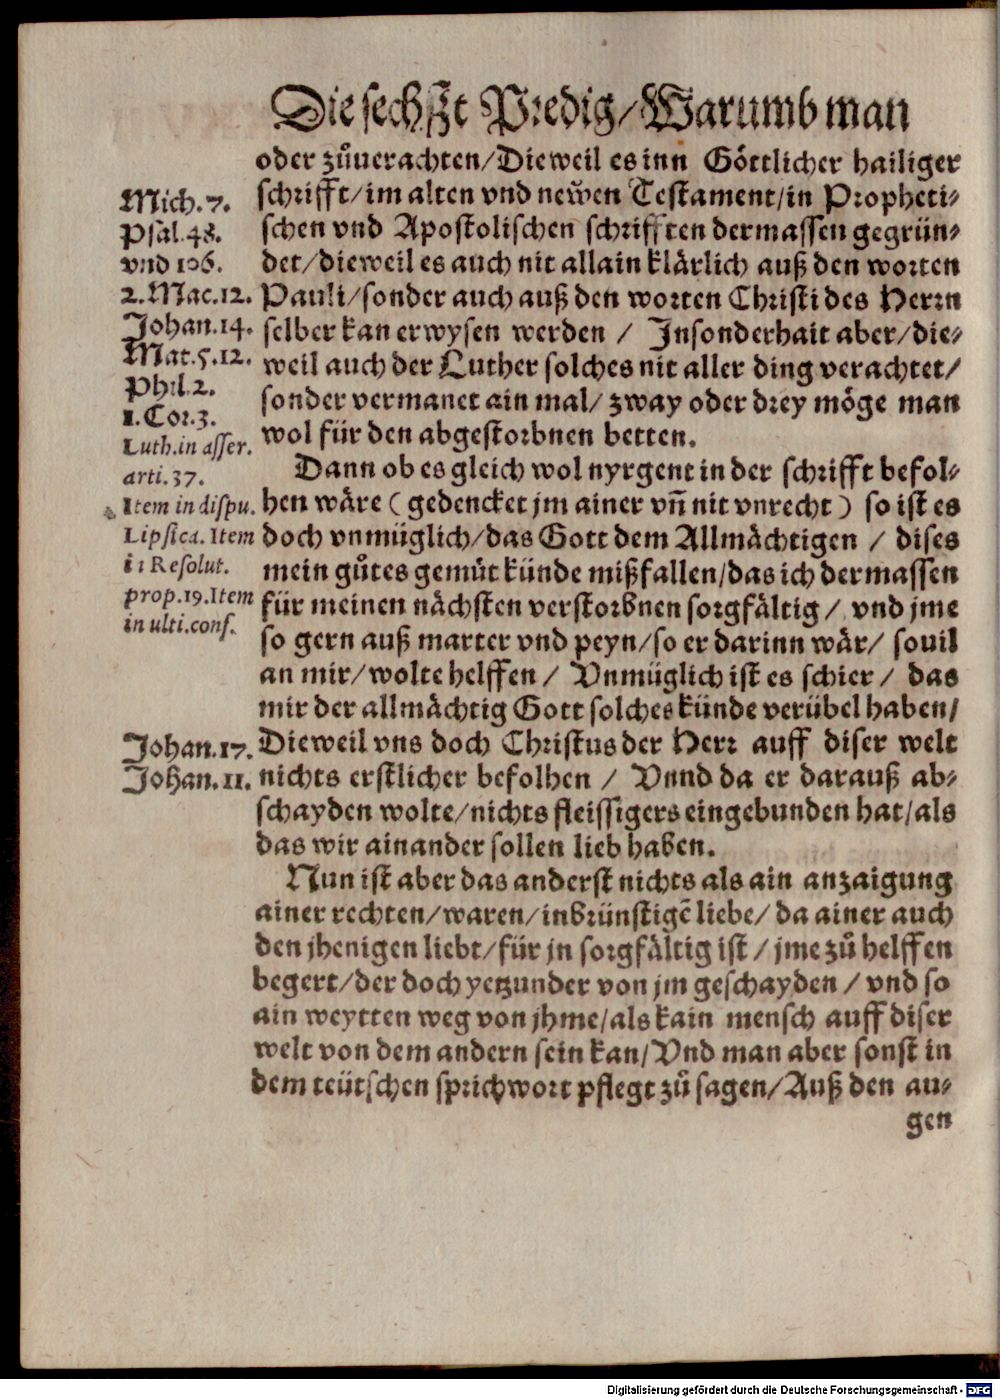 Die sechszt Predig/Warumb man
oder zůuerachten/Dieweil es inn Göttlicher hailiger
schrifft/im alten vnd newen Testament/in Propheti⸗
schen vnd Apostolischen schrifften dermassen gegrün⸗
det/dieweil es auch nit allain klärlich auß den worten
Pauli/sonder auch auß den worten Christi des Herrn
selber kan erwysen werden / Insonderhait aber/die⸗
weil auch der Luther solches nit aller ding verachtet/
sonder vermanet ain mal/ zway oder drey möge man
wol für den abgestorbnen betten.
Dann ob es gleich wol nyrgent in der schrifft befol⸗
hen wäre ( gedencket jm ainer vñ nit vnrecht ) so ist es
doch vnmüglich/das Gott dem Allmächtigen / dises
mein gůtes gemüt künde mißfallen/das ich dermassen
für meinen nächsten verstorbnen sorgfältig / vnd jme
so gern auß marter vnd peyn/so er darinn wär/ souil
an mir/wolte helffen / Vnmüglich ist es schier / das
mir der allmächtig Gott solches künde verübel haben/
Dieweil vns doch Christus der Herr auff diser welt
nichts erstlicher befolhen / Vnnd da er darauß ab⸗
schayden wolte/nichts fleissigers eingebunden hat/als
das wir ainander sollen lieb haben.
Nun ist aber das anderst nichts als ain anzaigung
ainer rechten/waren/inbrünstigē liebe/ da ainer auch
den jhenigen liebt/für jn sorgfältig ist / jme zů helffen
begert/der doch yetzunder von jm geschayden / vnd so
ain weytten weg von jhme/als kain mensch auff diser
welt von dem andern sein kan/Vnd man aber sonst in
dem teütschen sprichwort pflegt zů sagen/Auß den au⸗
gen
Mich.7.
Psal.48.
vnd 106.
2.Mac.12.
Johan.14.
Mat.5.12.
Phil.2.
1.Cor.3.
Luth.in asser.
arti.37.
Item in dispu.
Lipsica. Item
in Resolut.
prop.19.Item
in ulti.conf.
Johan.17.
Johan.11.
Digitalisierung gefördert durch die Deutsche Forschungsgemeinschaft - DFG